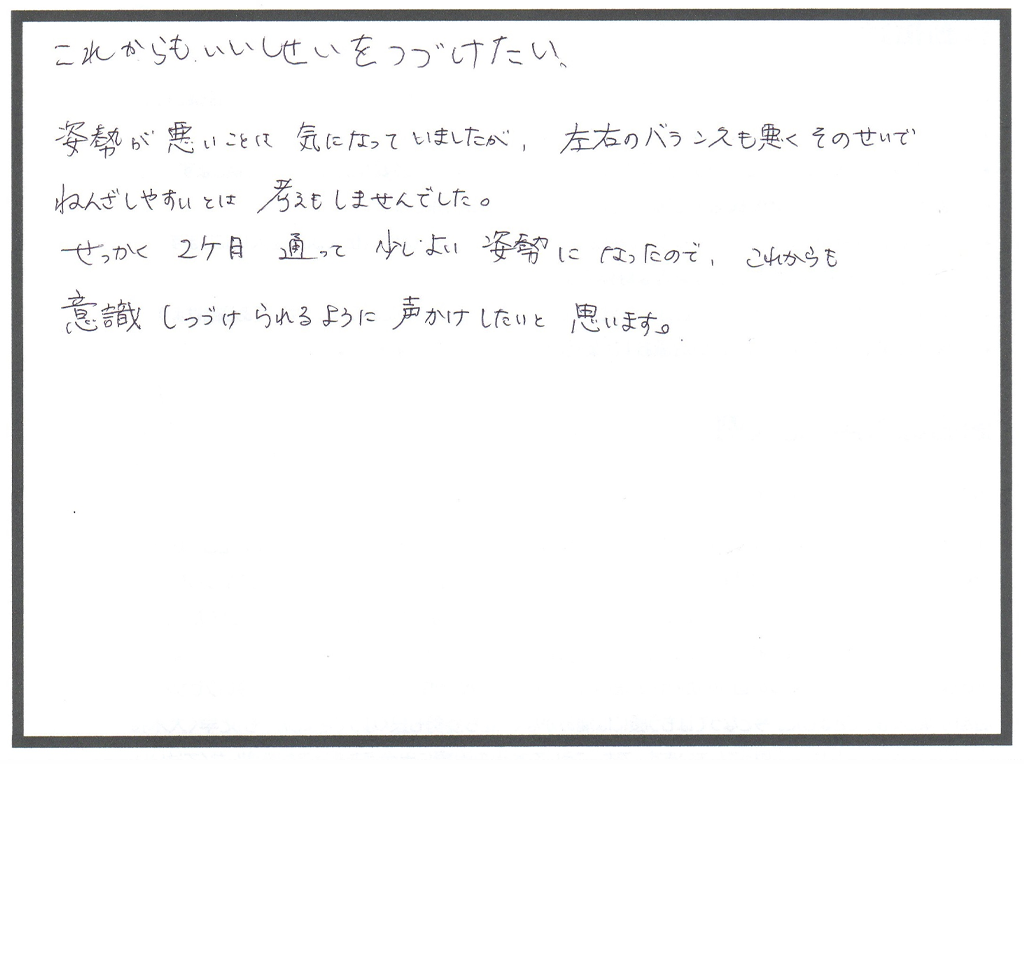 これからもいいしせいをつづけたい、
姿勢が悪いことは気になっていましたが、左右のバランスも悪くそのせいで
ねんざしやすいとは考えもしませんでした。
せっかく2ケ月通って少しよい姿勢になったので、これからも
意識しつづけられるように声かけしたいと思います。